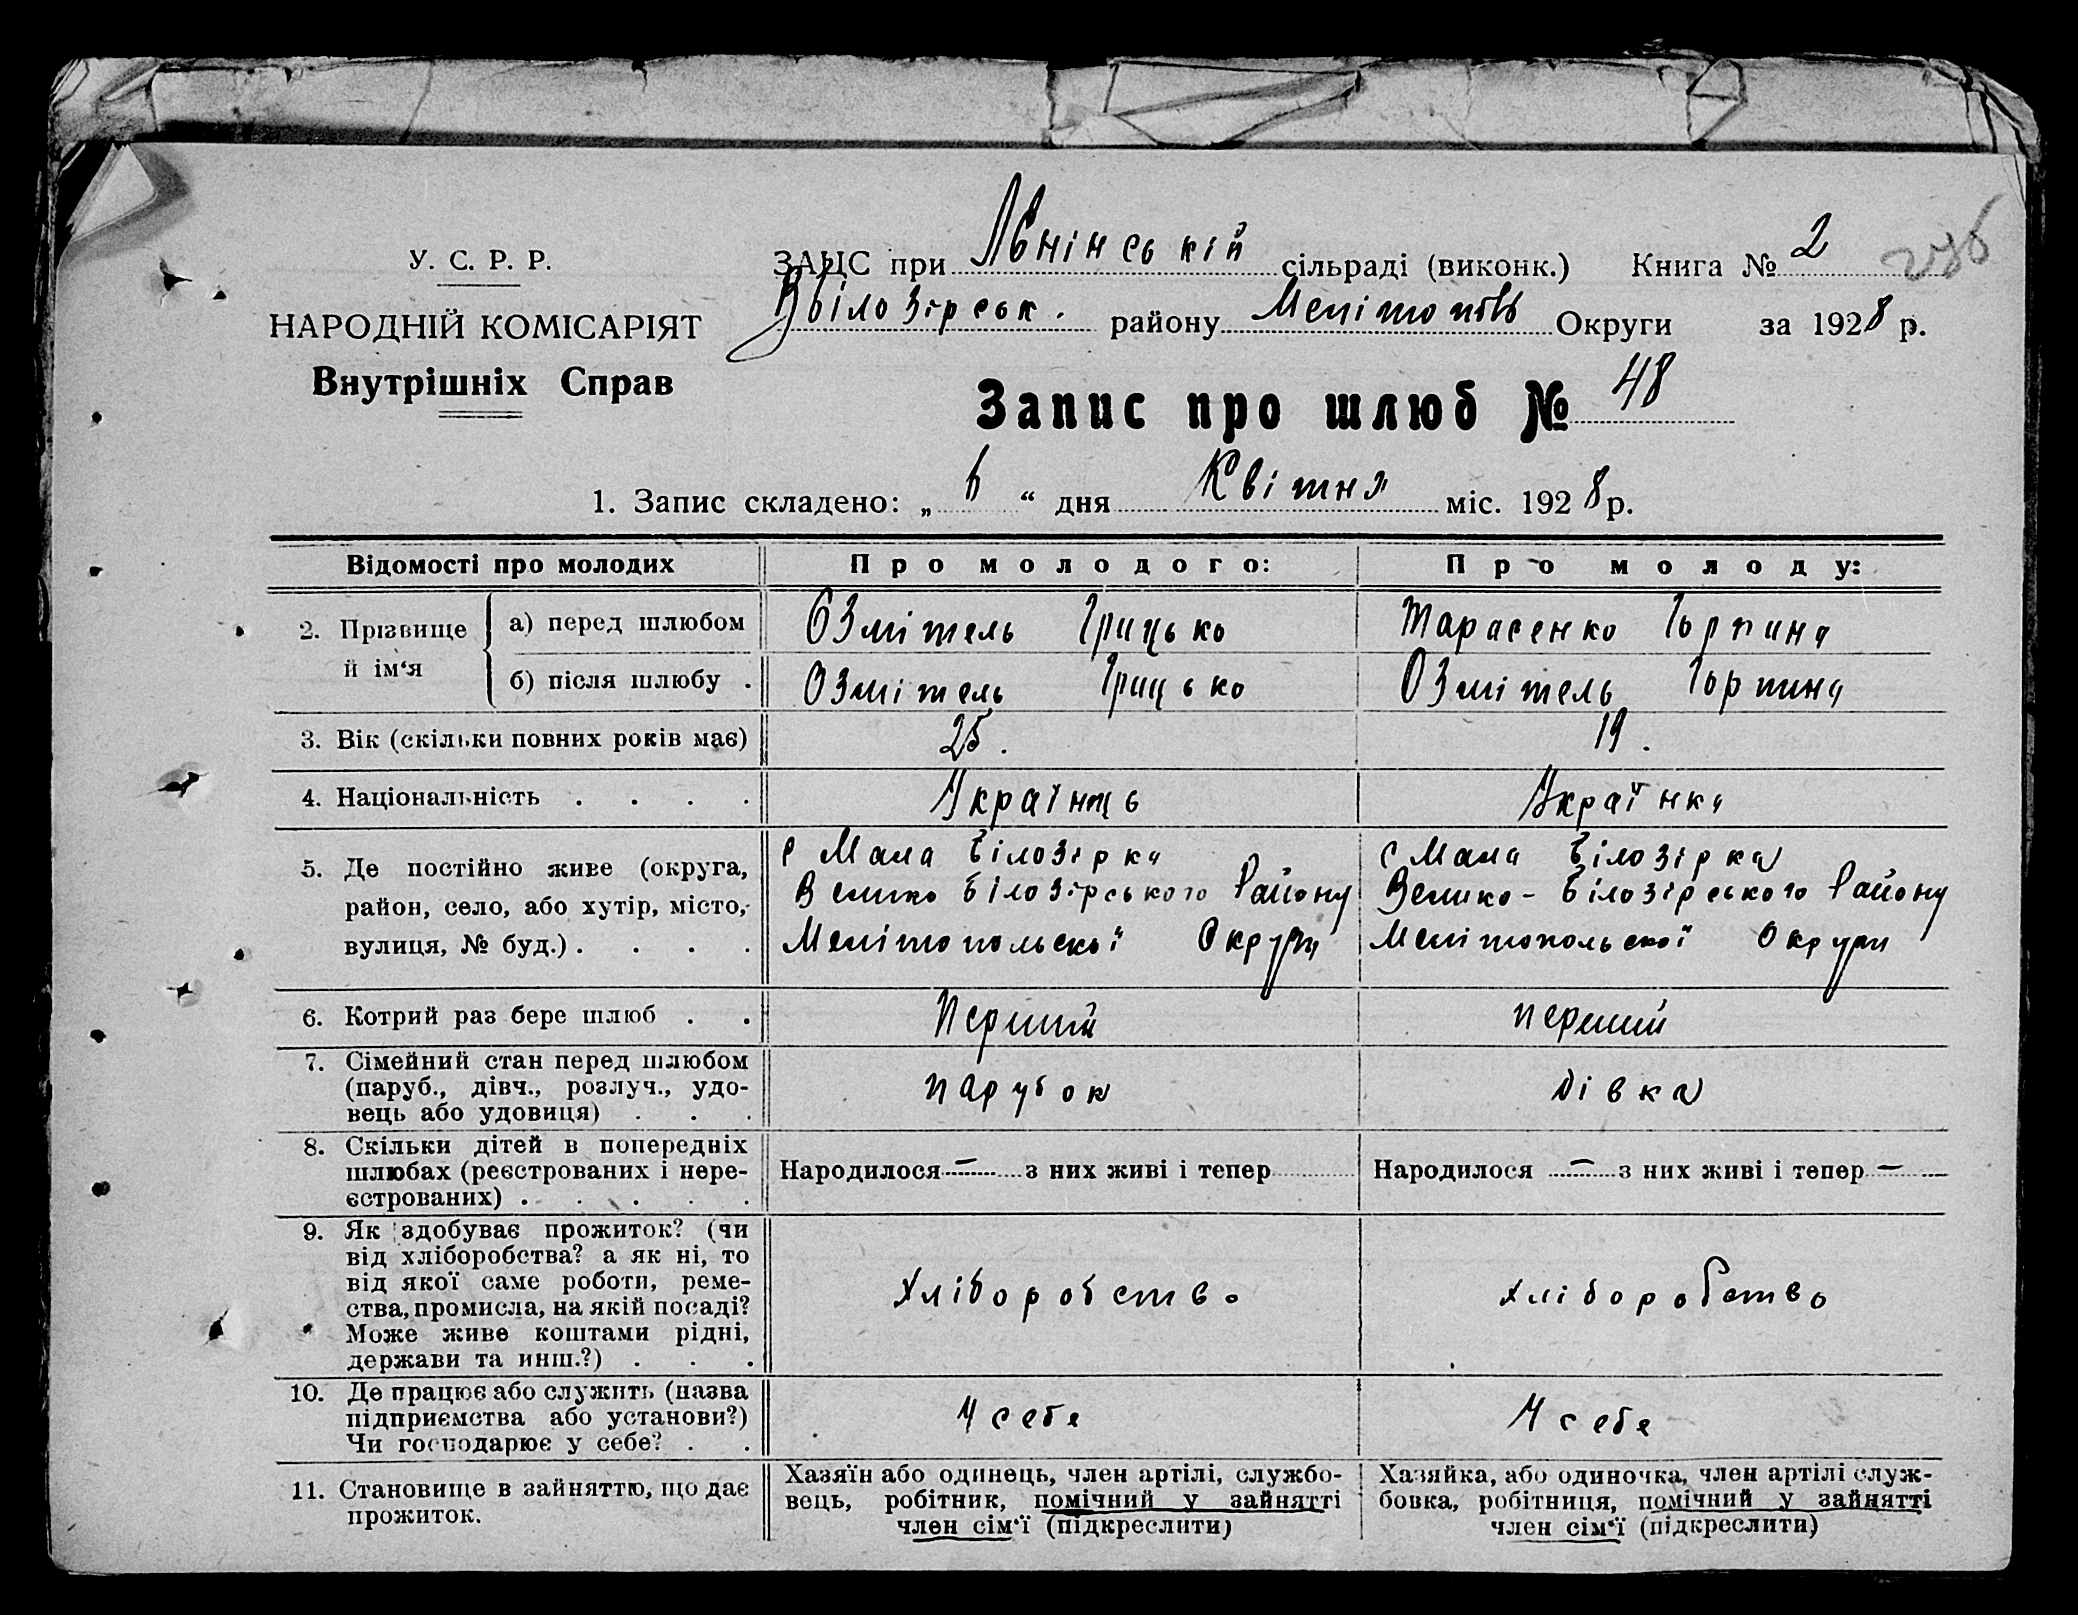 У. С. Р. Р.
НАРОДНІЙ КОМІСАРІЯТ
Внутрішніх Справ
ЗАЦС при сільраді (виконк.) Книга № 2
Вбілозірськ. району Мелітопівс Округи за 1928 р.
Запис про шлюб № 48
1. Запис складено: „ 6 “ дня Квітня міс. 1928 р.
Відомості про молодих Про молодого: Про молоду:
2. Прізвище й ім'я а) перед шлюбом Озмітель Грицько Тарасенко Горпина
б) після шлюбу . Озмітель Грицько Озмітель Горпина
3. Вік (скільки повних років має) 25. 19.
4. Національність . . . . Українець Українка
5. Де постійно живе (округа, с Мала Білозірка с Мала Білозірка
район, село, або хутір, місто, Велико Білозірського Району Велико-Білозірського Району
вулиця, № буд.) . . . . Мелітопольської Округи Мелітопольської Округи
6. Котрий раз бере шлюб . . Перший перший
7. Сімейний стан перед шлюбом
(паруб., дівч., розлуч., удо- парубок дівка
вець або удовиця) . . .
8. Скільки дітей в попередніх
шлюбах (реєстрованих і нере- Народилося — з них живі і тепер Народилося — з них живі і тепер —
єстрованих) . . . . .
9. Як здобуває прожиток? (чи
від хліборобства? а як ні, то
від якої саме роботи, реме- хліборобство хліборобство
ства, промисла, на якій посаді?
Може живе коштами рідні,
держави та инш.?) . . .
10. Де працює або служить (назва
підприємства або установи?) У себе У себе
Чи господарює у себе? . .
11. Становище в зайняттю, що дає
прожиток.
Хазяїн або одинець, член артілі, службо-
вець, робітник, помічний у зайнятті
член сім'ї (підкреслити)
Хазяйка, або одиночка, член артілі служ-
бовка, робітниця, помічний у зайнятті
член сім'ї (підкреслити)